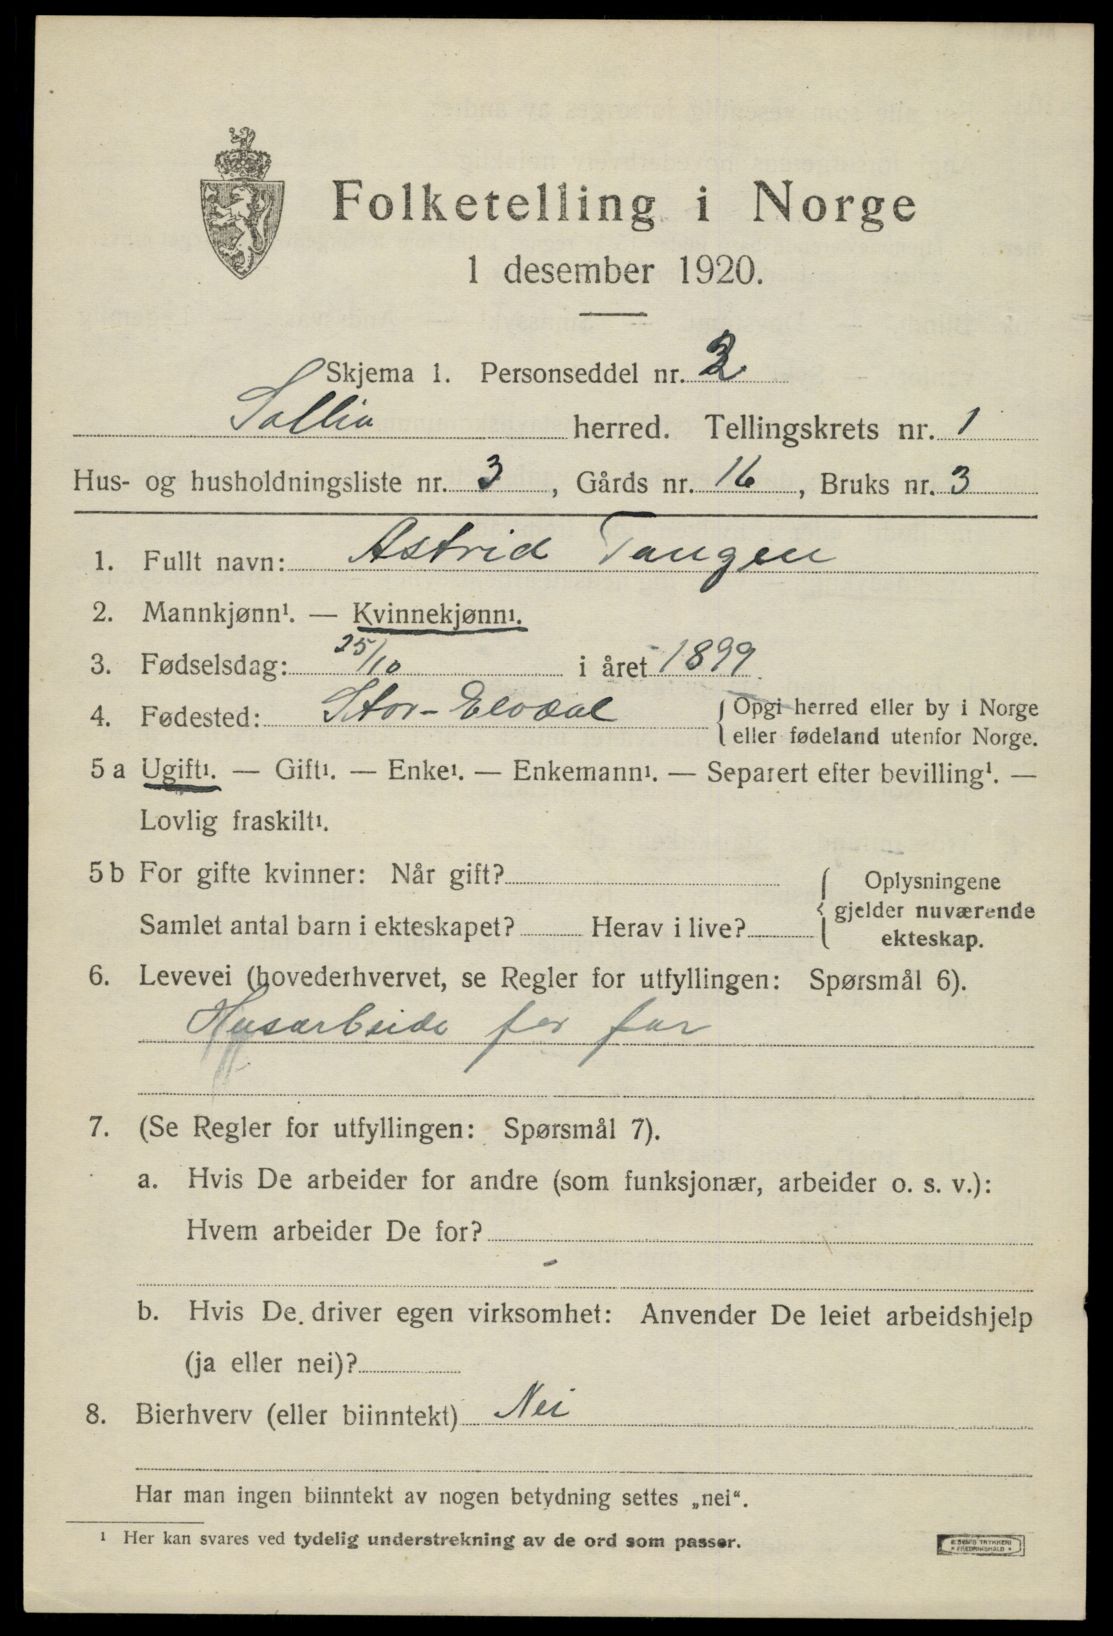 Folketelling i Norge
1 desember 1920.
Skjema 1. Personseddel nr. 2
Sollia herred. Tellingskrets nr. 1
Hus- og husholdningsliste nr. 3, Gårds nr. 16, Bruks nr. 3
1. Fullt navn: Astrid Tangen
2. Mannkjønn¹. — Kvinnekjønn¹.
3. Fødselsdag: 25/10 i året 1899.
4. Fødested: Stor-Elvdal { Opgi herred eller by i Norge
eller fødeland utenfor Norge.
5 a Ugift¹. — Gift¹. — Enke¹. — Enkemann¹. — Separert efter bevilling¹. —
Lovlig fraskilt¹.
5 b For gifte kvinner: Når gift? { Oplysningene
gjelder nuværende
Samlet antal barn i ekteskapet? Herav i live?
ekteskap.
6. Levevei (hovederhvervet, se Regler for utfyllingen: Spørsmål 6).
Husarbeide for far
7. (Se Regler for utfyllingen: Spørsmål 7).
a. Hvis De arbeider for andre (som funksjonær, arbeider o. s. v.):
Hvem arbeider De for?
-
b. Hvis De driver egen virksomhet: Anvender De leiet arbeidshjelp
(ja eller nei)?
8. Bierhverv (eller biinntekt) Nei
Har man ingen biinntekt av nogen betydning settes „nei“.
¹ Her kan svares ved tydelig understrekning av de ord som passer.